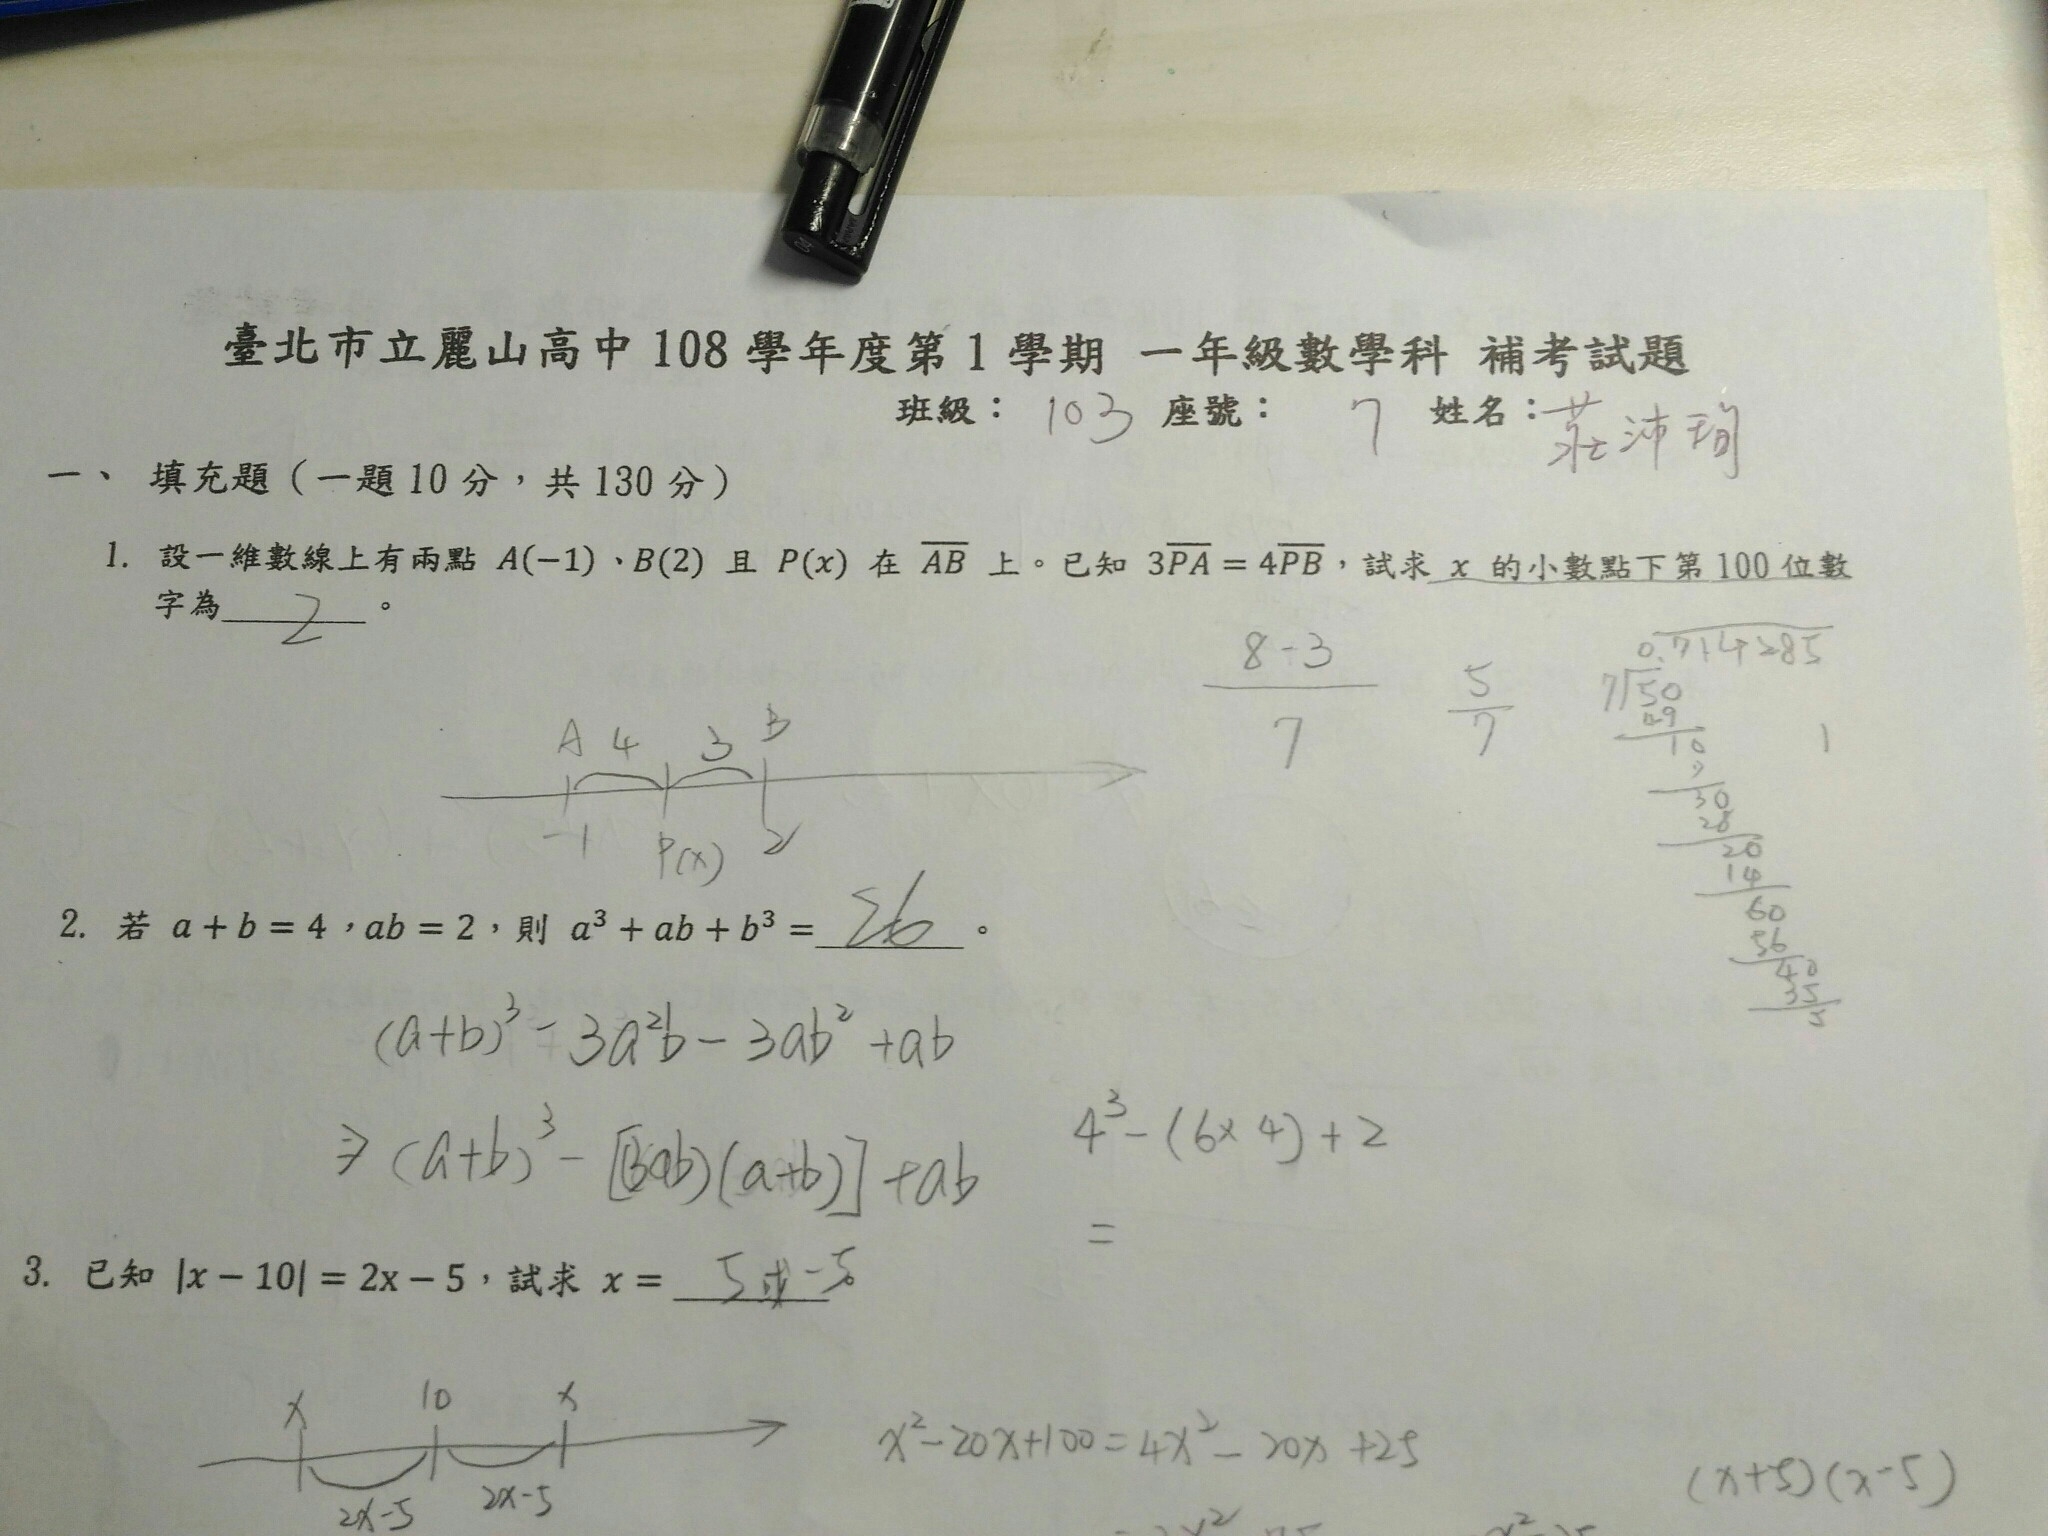 臺北市立麗山高中 108 學年度第 1 學期 一年級數學科 補考試題
班級： 103 座號： 7 姓名：莊沛珣
一、 填充題（一題 10 分，共 130 分）
1. 設一維數線上有兩點 A(−1)、B(2) 且 P(x) 在 AB 上。已知 3PA = 4PB，試求 x 的小數點下第 100 位數
字為 2 。
8-3
7
5
7
0.714285
7 50
49
10
7
30
28
20
14
60
56
40
35
5
1
A 4 3 B
-1 P(x) 2
2. 若 a + b = 4，ab = 2，則 a³ + ab + b³ = 26 。
(a+b)³ - 3a²b - 3ab² + ab
⇒ (a+b)³ - [(3ab)(a+b)] + ab
4³ - (6×4) + 2
=
3. 已知 |x − 10| = 2x − 5，試求 x = 5或-5
x 10 x
2x-5 2x-5
x²-20x+100=4x²-20x+25
(x+5)(x-5)